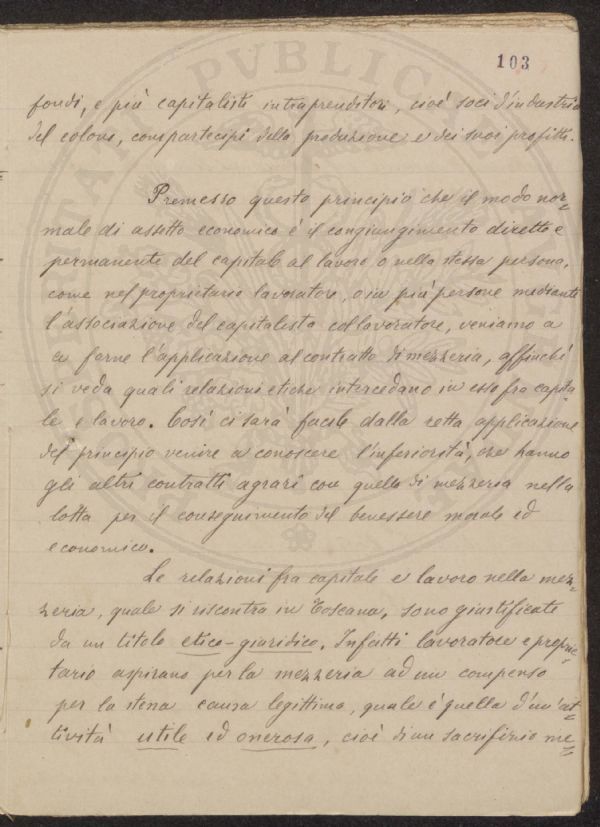 103
fondi, e più capitalisti intraprenditori, cioè soci d'industria
del colono, compartecipi della produzione e dei suoi profitti.
Premesso questo principio che il modo nor=
male di assetto economico è il congiungimento diretto e
permanente del capitale al lavoro o nella stessa persona,
come nel proprietario lavoratore, o in più persone mediante
l'associazione del capitalista col lavoratore, veniamo a
a farne l'applicazione al contratto di mezzeria, affinchè
si veda quali relazioni etiche intercedano in esso fra capita=
le e lavoro. Così ci sarà facile dalla retta applicazione
del principio venire a conoscere l'inferiorità, che hanno
gli altri contratti agrari con quello di mezzeria nella
lotta per il conseguimento del benessere morale ed
economico.
Le relazioni fra capitale e lavoro nella mez=
zeria, quale si riscontra in Toscana, sono giustificate
da un titolo etico-giuridico. Infatti lavoratore e proprie=
tario aspirano per la mezzeria ad un compenso
per la stessa causa legittima, quale è quella d'un'at=
tività utile ed onerosa, cioè di un sacrifizio me=